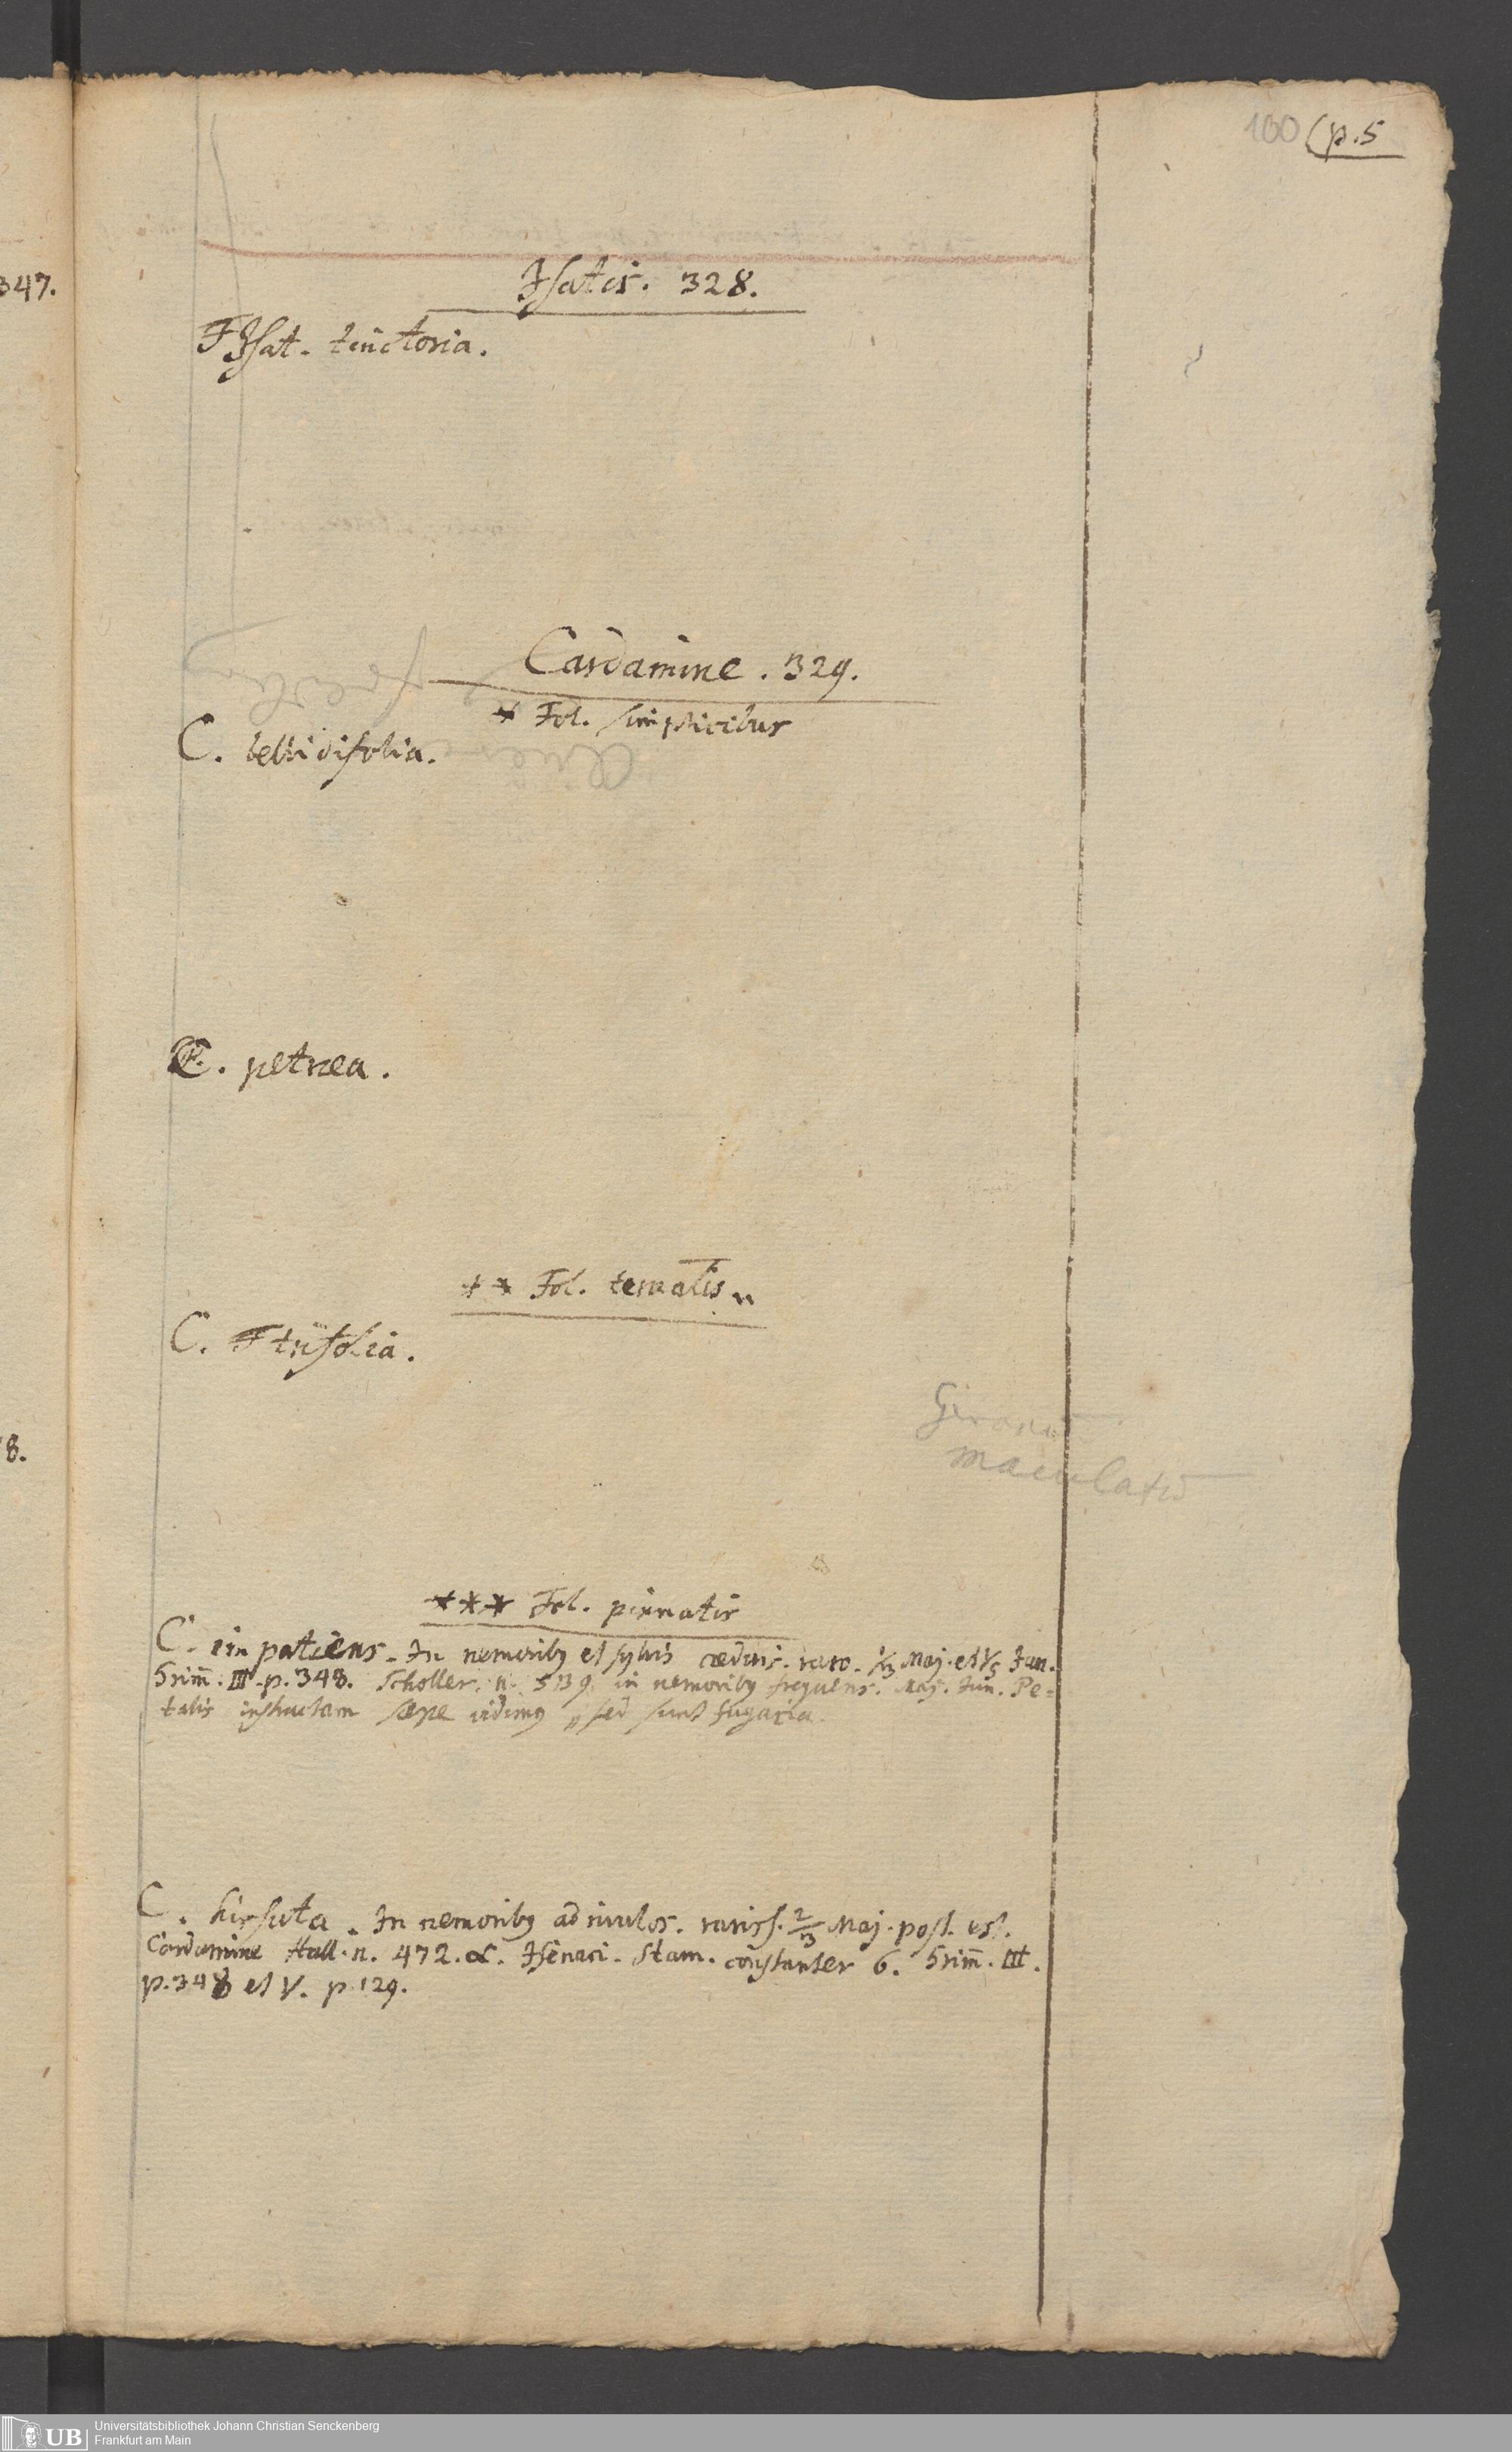 100 (p.5
347.
Isatis. 328.
Isat. tinctoria.
Cardamine. 329.
* Fol. simplicibus
C. bellidifolia.
C. petræa.
** Fol. ternatis
C. trifolia.
8.
maculatū
*** Fol. pinnatis
C. impatiens. In nemorib9 et sylvis cæduis. raro. Maj. et Jun.
Grim̄. III. p. 348. Scholler. n. 539 in nemorib9 frequens. Maj. Jun. Pe=
talis instructam sæpe vidim9, sed sunt fugacia.
C. hirsuta. In nemorib9 ad rivulos. rariss. 2/13 Maj. post. est.
Cardamine Hall. n. 472. α. Isenaci. Stam. constanter 6. Grim̄. III.
p. 348 et V. p. 129.
UB Universitätsbibliothek Johann Christian Senckenberg
Frankfurt am Main